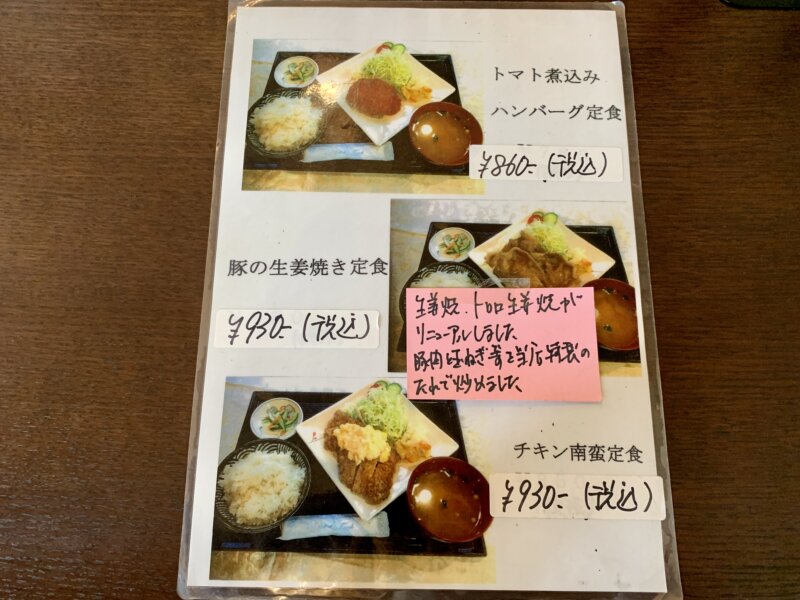 トマト煮込み
ハンバーグ定食
¥860-(税込)
豚の生姜焼き定食
¥930-(税込)
生姜焼、トロロ生姜焼が
リニューアルしました
豚肉と玉ねぎ等を当店特製の
たれで炒めました
チキン南蛮定食
¥930-(税込)